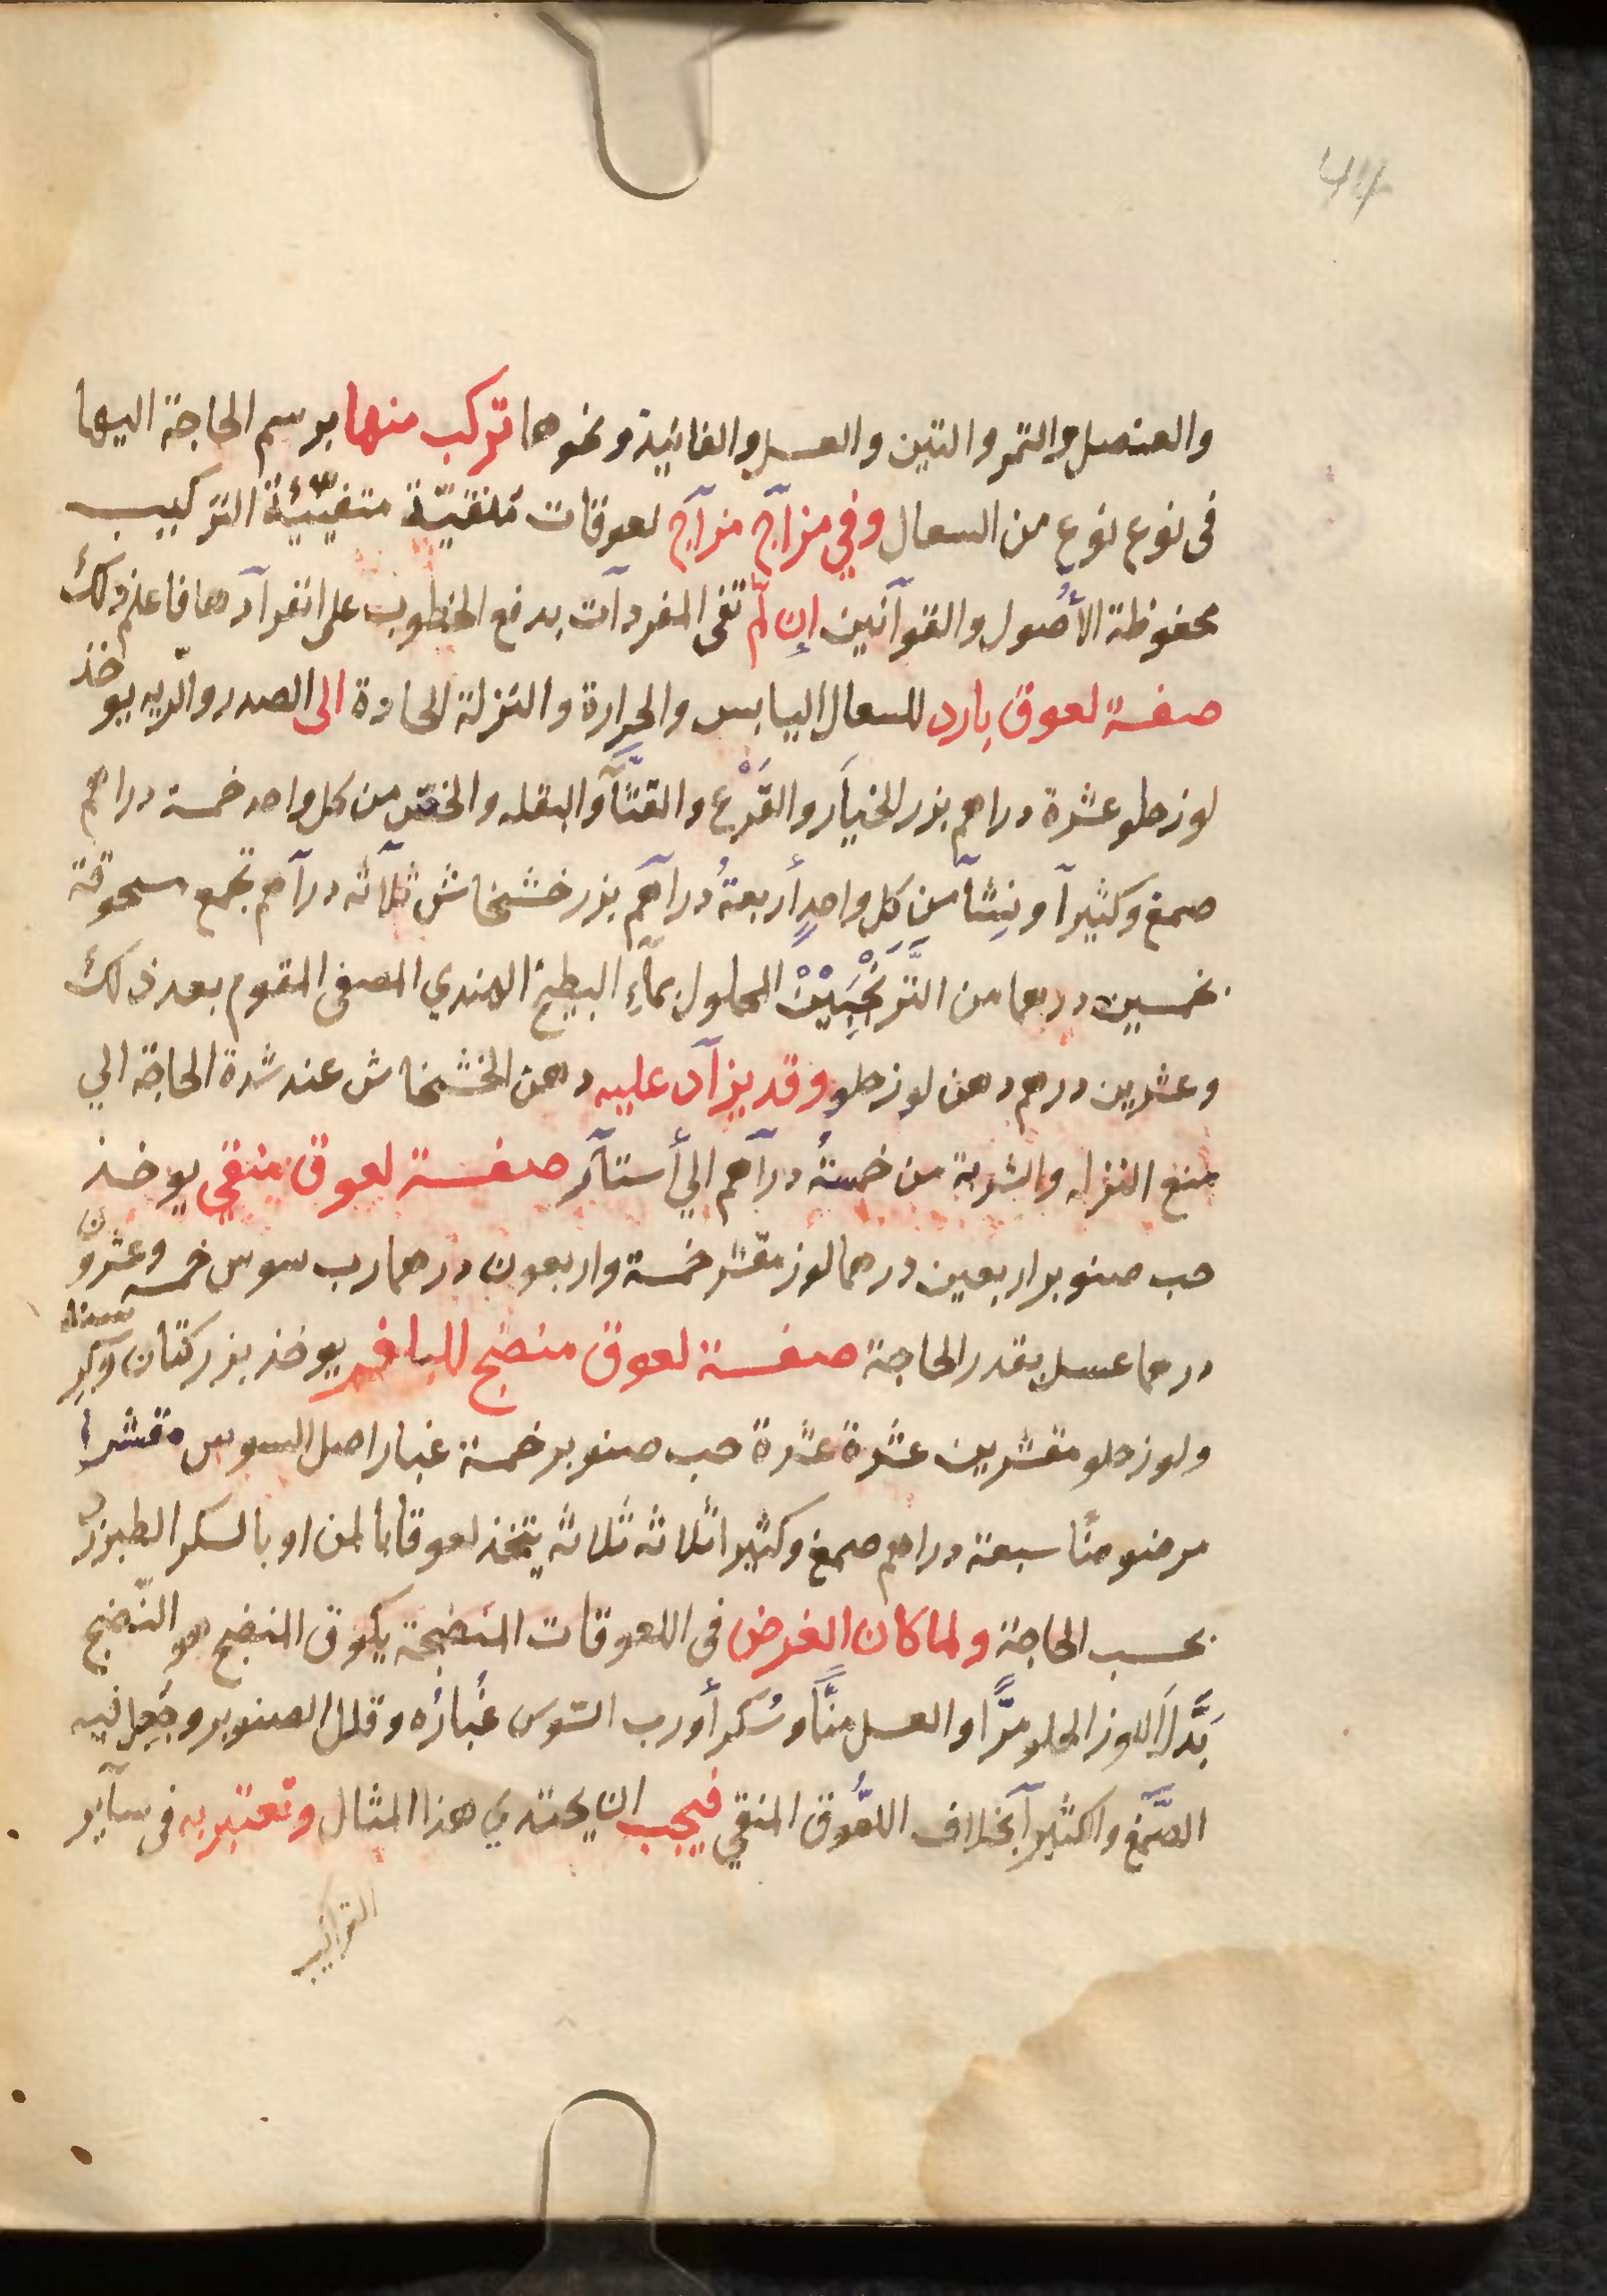 44
والعنصل والتمر والتين والعسل والفانيذ ونحوها تركب منها برسم الحاجة اليها
فى نوع نوع من السعال وفي مزآج مزآج لعوقات متفننة التركيب
محفوظة الأصُول والقوآنين إن لّم تفى المفردآت بدفع الخطوب على انفرآدها فاعلم ذلك
صفة لعوق بارد للسعال اليابس والحرارة والنزلة الحادة الى الصدر والرّيه يوخذ
لوز حلو عشرة دراهم بزر الخيار والقَرْع والقثّآ والبقله والخس من كل واحد خمسة دراهم
صمغ وكثيرآ ونِشآ من كل واحدٍ أربعةُ درآهم بزر خشخاش ثلآثه درآهم تجمع مسحوقة
بخمسين درهما من التَّرَنْجَبِيْنْ المحلول بمآءِ البطيخ الهندي المصفى المقوم بعد ذلك
وعشرين درهم دهن لوز حلو وقد يزآد عليه دهن الخشخاش عند شدة الحاجة الي
منع النزله والشربة من خمسةُ درآهم الي أستآر صفة لعوق منقي يوخذ
حب صنوبر اربعين درهما لوز مقشر خمسة واربعون درهما رب سوس خمسه وعشرون
درهما عسل بقدر الحاجة صفة لعوق منضج للبلغم يوخذ بزر كتان
ولوز حلو مقشرين عشرة عشرة حب صنوبر خمسة غبار اصل السوس مقشراً
مرضوضًا سبعة دراهم صمغ وكثيرا ثلاثه ثلاثه يتخذ لعوقا بالمن او بالسكر الطبرزد
بحسب الحاجة ولما كان الغرض فى اللعوقات المنضجة يكون المنضج هو النّضج
بَدَّلَ اللوز الحلو مرًّا والعسل منًّا وسُكرا أورب السّوس غُبارُه وقلل الصنوبر وجَعِل فيه
الصَّمْغ والكثيرآ بخلاف اللعُوق المنقي فيجب ان يحتدي هذا المثال وتعتبر به فى سآير
التراكيب